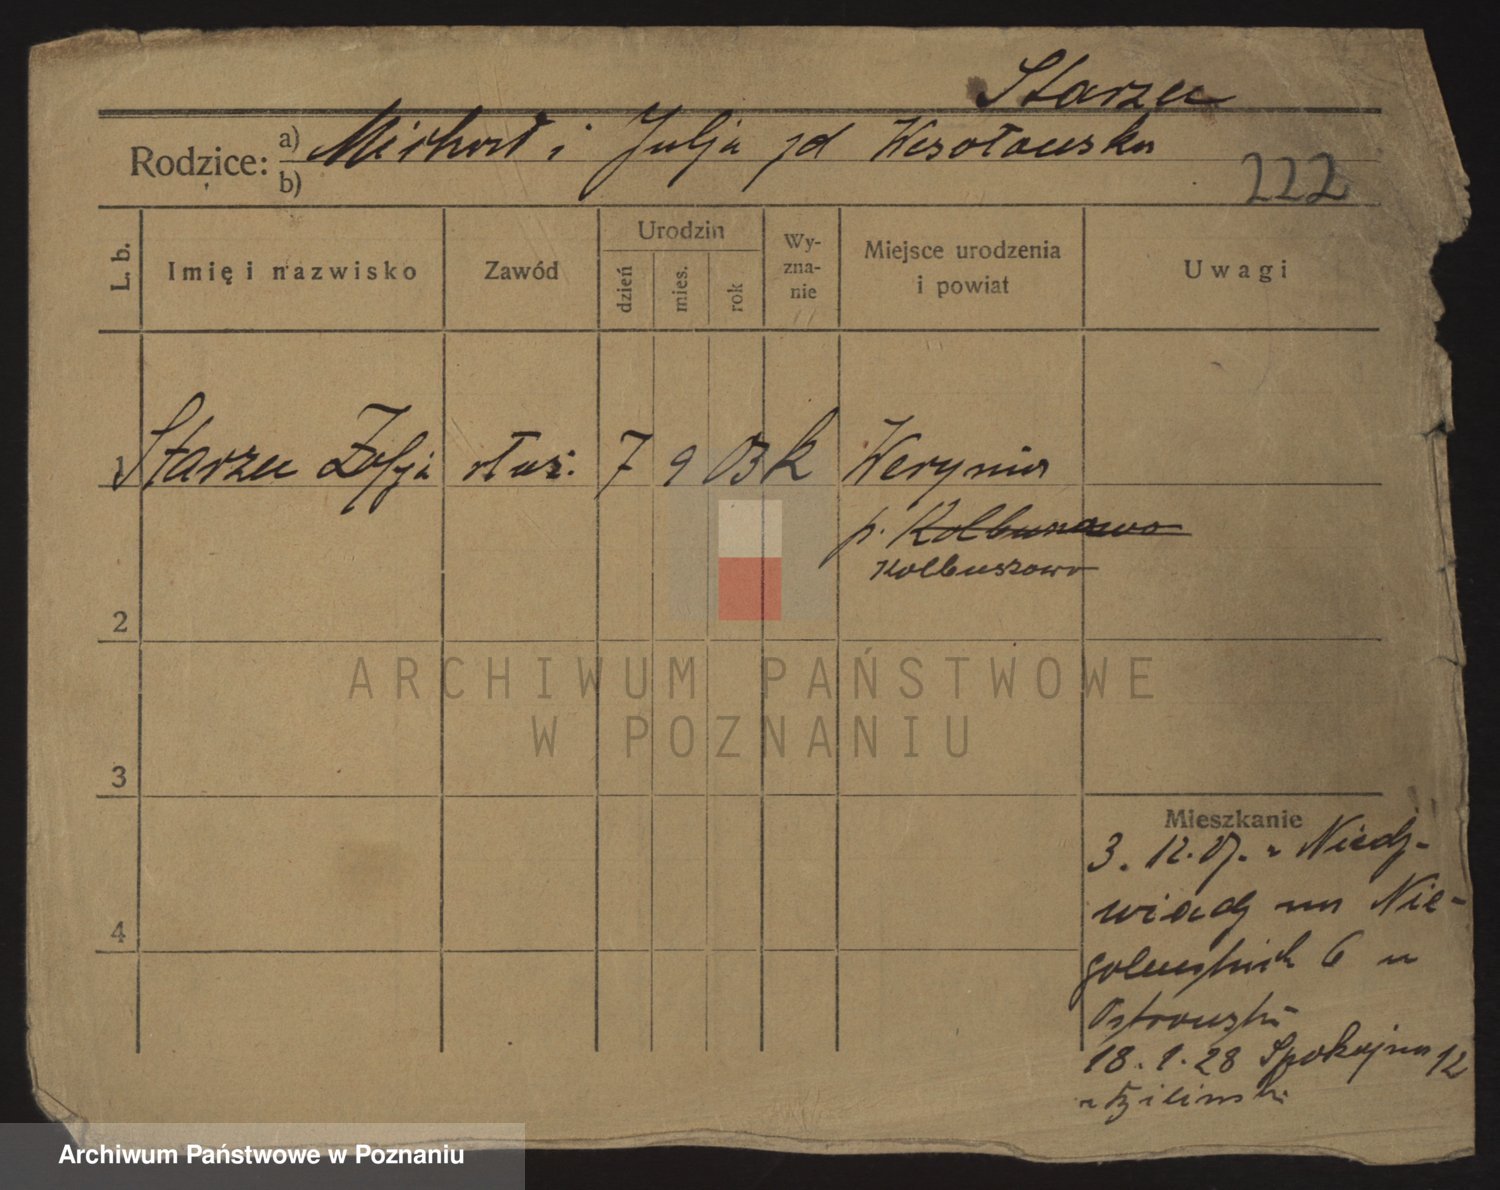 Starzec
Rodzice: a) Michał i Julja zd Wesołowska
b)
222
L. b. Imię i nazwisko Zawód Urodzin dzień mies. rok Wy-zna-nie Miejsce urodzenia i powiat Uwagi
1 Starzec Zofja służ. 7 9 03 k Werynia
p. Kolbuszowa
Kolbuszowa
2
3
4
Mieszkanie
3. 12. 27. z Niedź-
wiady na Nie-
golewskich 6 u
Ostrowski
18. 1. 28 Spokojna 12
ARCHIWUM PAŃSTWOWE
W POZNANIU
Archiwum Państwowe w Poznaniu